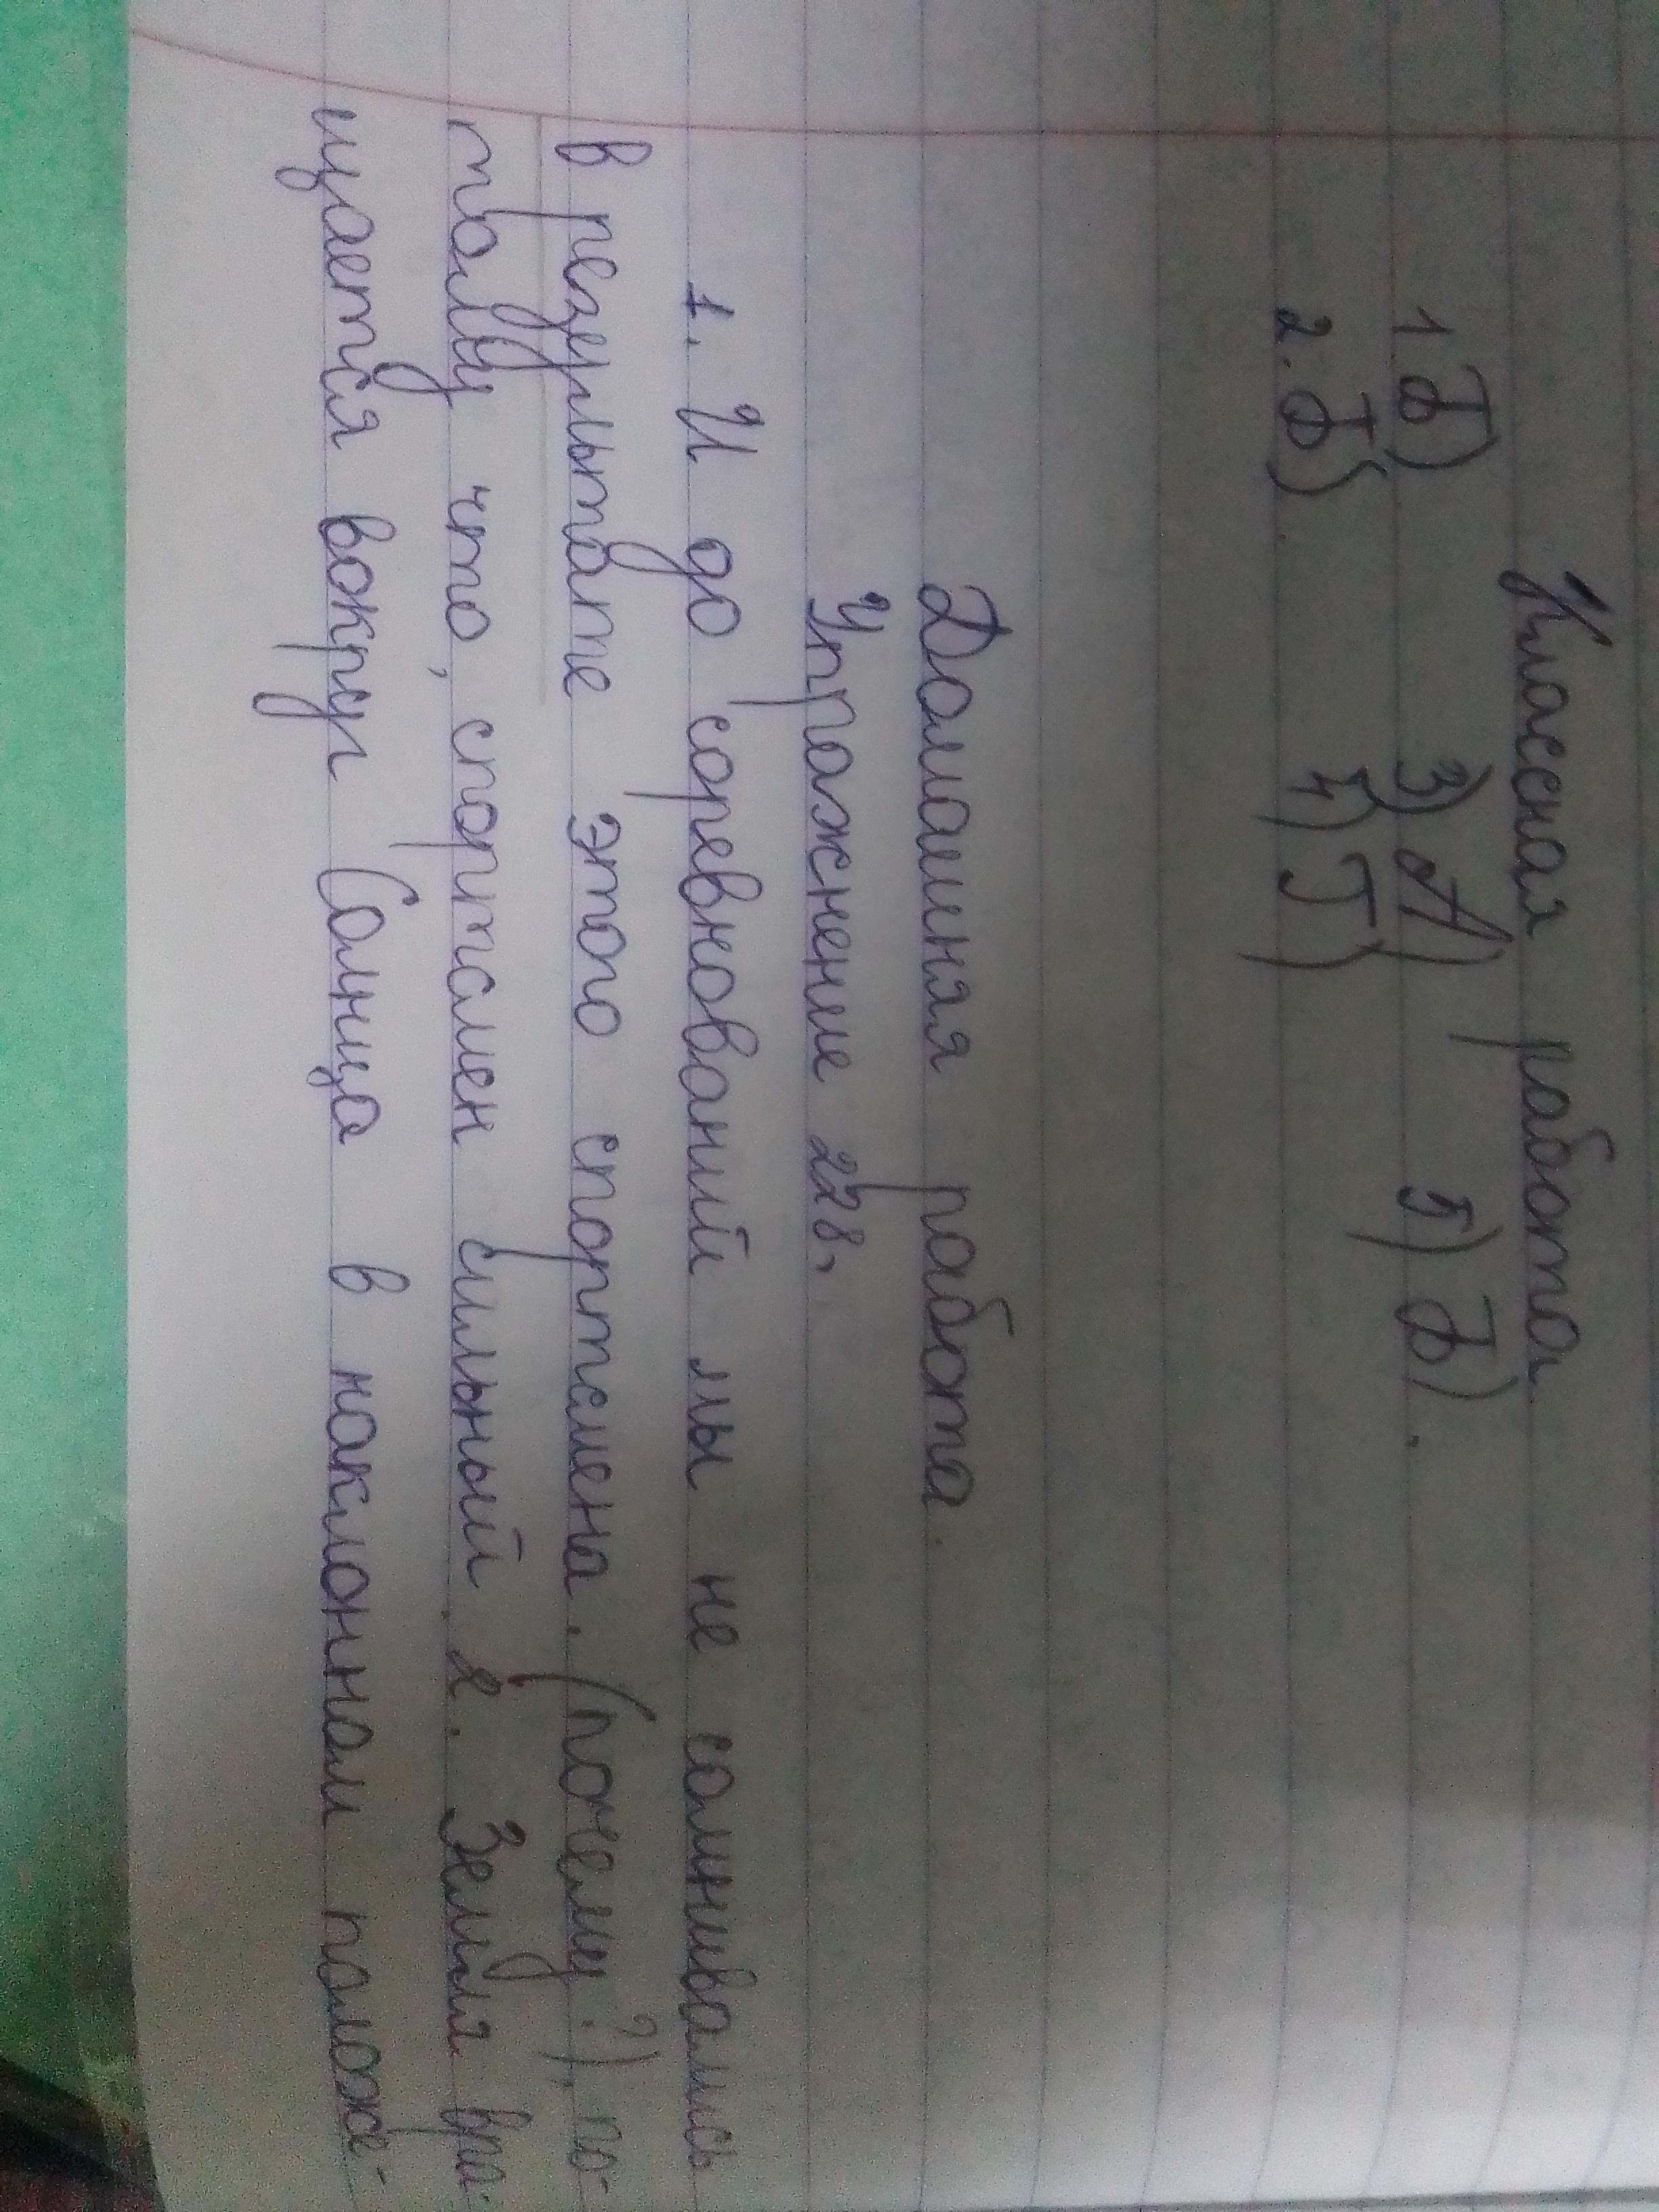 Класная работа
1 Б) 3) А) 5) Б).
2. Б). 4) Г)
Домашняя работа.
Упражнение 228.
1. И до соревнований мы не сомнивались
в результате этого спортсмена. (почему?), по-
тому что, спортсмен сильный. 2. Земля вра-
щается вокруг Солнца в наклонном положе-